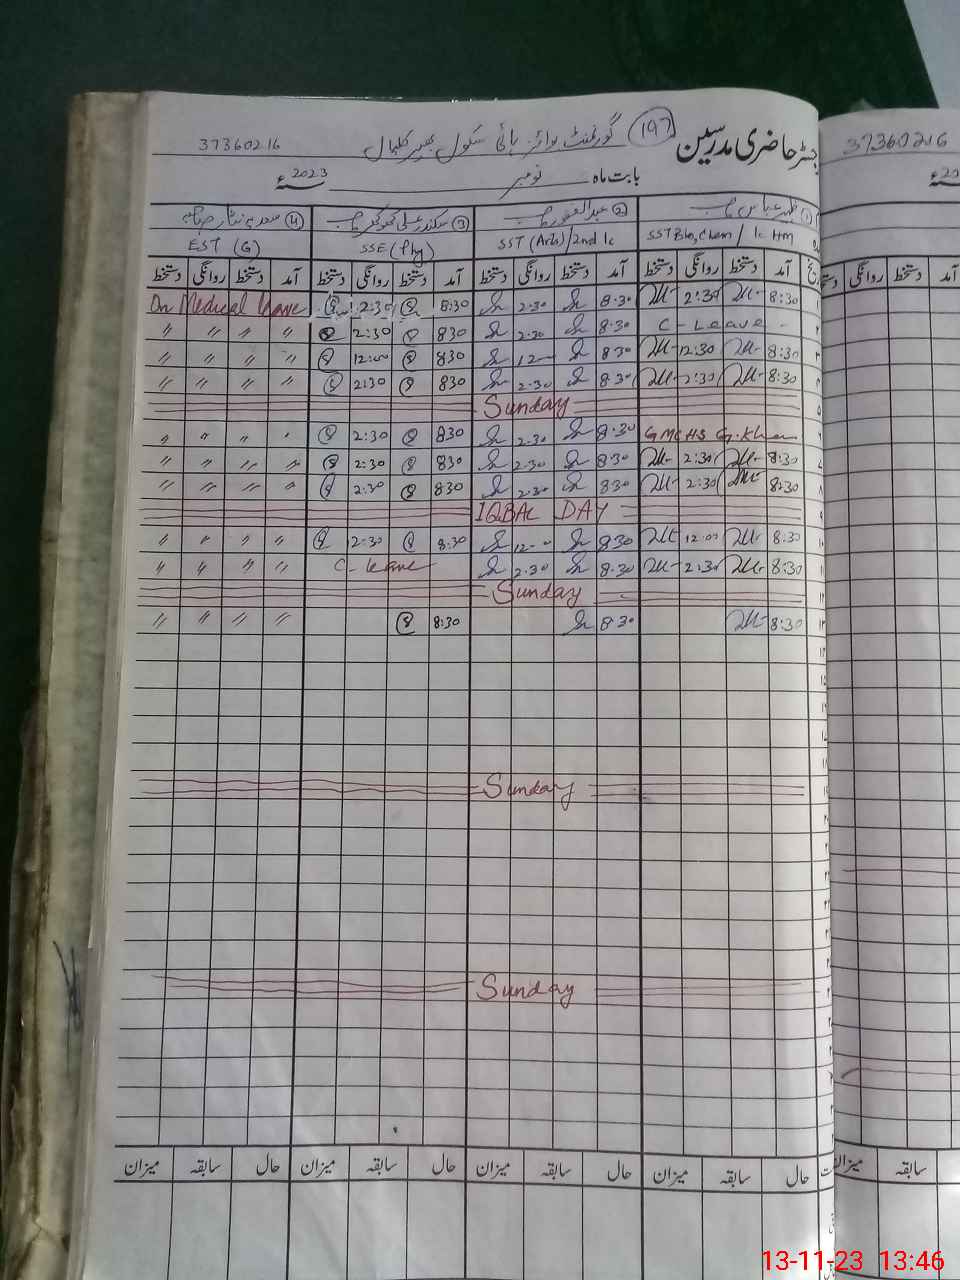 رجسٹر حاضری مدرسین
197
گورنمنٹ بوائز ہائی سکول
37360216
37360216
بابت ماہ نومبر 2023ء
① ظہیر عباس ② عبدالغفور ③ سکندر علی ④
SST Bio, Chem / Ic HM SST (Arts)/2nd Ic SSE (Phy) EST (G)
آمد دستخط روانگی دستخط آمد دستخط روانگی دستخط آمد دستخط روانگی دستخط آمد دستخط روانگی دستخط
On Medical leave 2:30 8:30 2.30 8.30 2:30 8:30
" " " " 2:30 830 2.30 8.30 C-Leave
" " " " 12:00 830 12 8.30 12:30 8:30
" " " " 2:30 830 2.30 8.30 2:30 8:30
Sunday
" " " " 2:30 830 2.30 8.30 GMCHS G.Khan
" " " " 2:30 830 2.30 8.30 2:30 8:30
" " " " 2:30 830 2.30 8.30 2:30 8:30
IQBAL DAY
" " " " 12:30 8:30 12-00 8.30 12.00 8.30
" " " " C-leave 2.30 8.30 2:30 8:30
Sunday
" " " " 8:30 8.30 8:30
Sunday
Sunday
حال سابقہ میزان حال سابقہ میزان حال سابقہ میزان حال سابقہ میزان
13-11-23 13:46